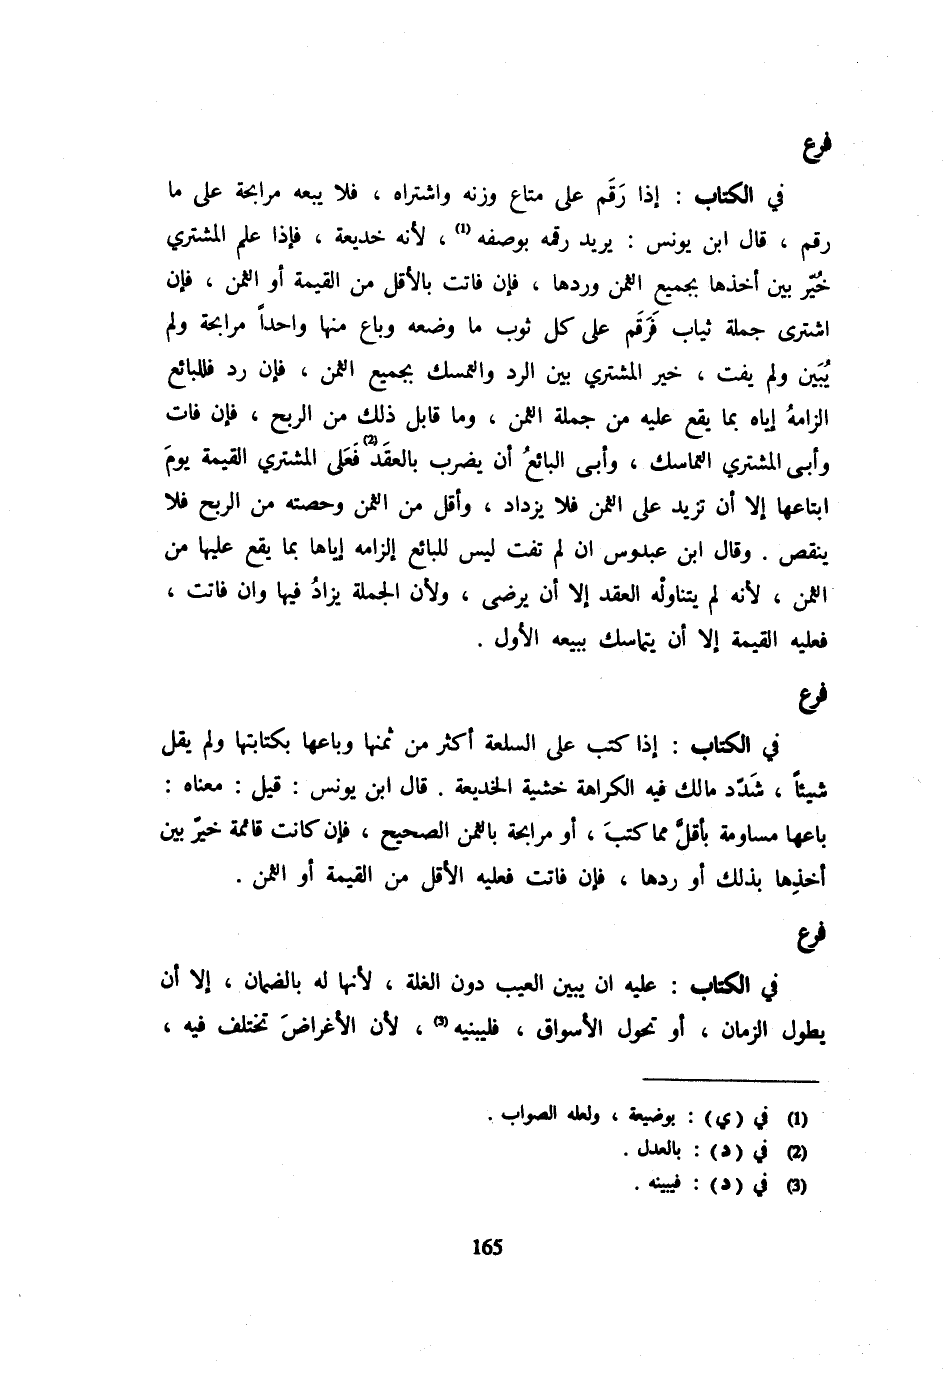 فرع
في الكتاب : إذا رَقَم على متاع وزنه واشتراه ، فلا يبعه مرابحة على ما
رقم ، قال ابن يونس : يريد رقمه بوصفه (1) ، لأنه خديعة ، فإذا علم المشتري
خُيّر بين أخذها بجميع الثمن وردها ، فإن فاتت بالأقل من القيمة أو الثمن ، فإن
اشترى جملة ثياب فَرَقَم على كل ثوب ما وضعه وباع منها واحداً مرابحة ولم
يُبَين ولم يفت ، خير المشتري بين الرد والتمسك بجميع الثمن ، فإن رد فللبائع
الزامهُ إياه بما يقع عليه من جملة الثمن ، وما قابل ذلك من الربح ، فإن فات
وأبى المشتري التماسك ، وأبى البائعُ أن يضرب بالعقَد (2) فَعَلى المشتري القيمة يومَ
ابتاعها إلا أن تزيد على الثمن فلا يزداد ، وأقل من الثمن وحصته من الربح فلا
ينقص . وقال ابن عبدوس ان لم تفت ليس للبائع إلزامه إياها بما يقع عليها من
الثمن ، لأنه لم يتناولْه العقد إلا أن يرضى ، ولأن الجملة يزادُ فيها وان فاتت ،
فعليه القيمة إلا أن يتماسك ببيعه الأول .
فرع
في الكتاب : إذا كتب على السلعة أكثر من ثمنها وباعها بكتابتها ولم يقل
شيئاً ، شَدّد مالك فيه الكراهة خشية الخديعة . قال ابن يونس : قيل : معناه :
باعها مساومة بأقلَّ مما كتبَ ، أو مرابحة بالثمن الصحيح ، فإن كانت قائمة خيرّ بين
أخذِها بذلك أو ردها ، فإن فاتت فعليه الأقل من القيمة أو الثمن .
فرع
في الكتاب : عليه ان يبين العيب دون الغلة ، لأنها له بالضمان ، إلا أن
يطول الزمان ، أو تحول الأسواق ، فليبنيه (3) ، لأن الأغراضَ تختلف فيه ،
(1) في (ي) : بوضيعة ، ولعله الصواب .
(2) في (د) : بالعدل .
(3) في (د) : فيبينه .
165